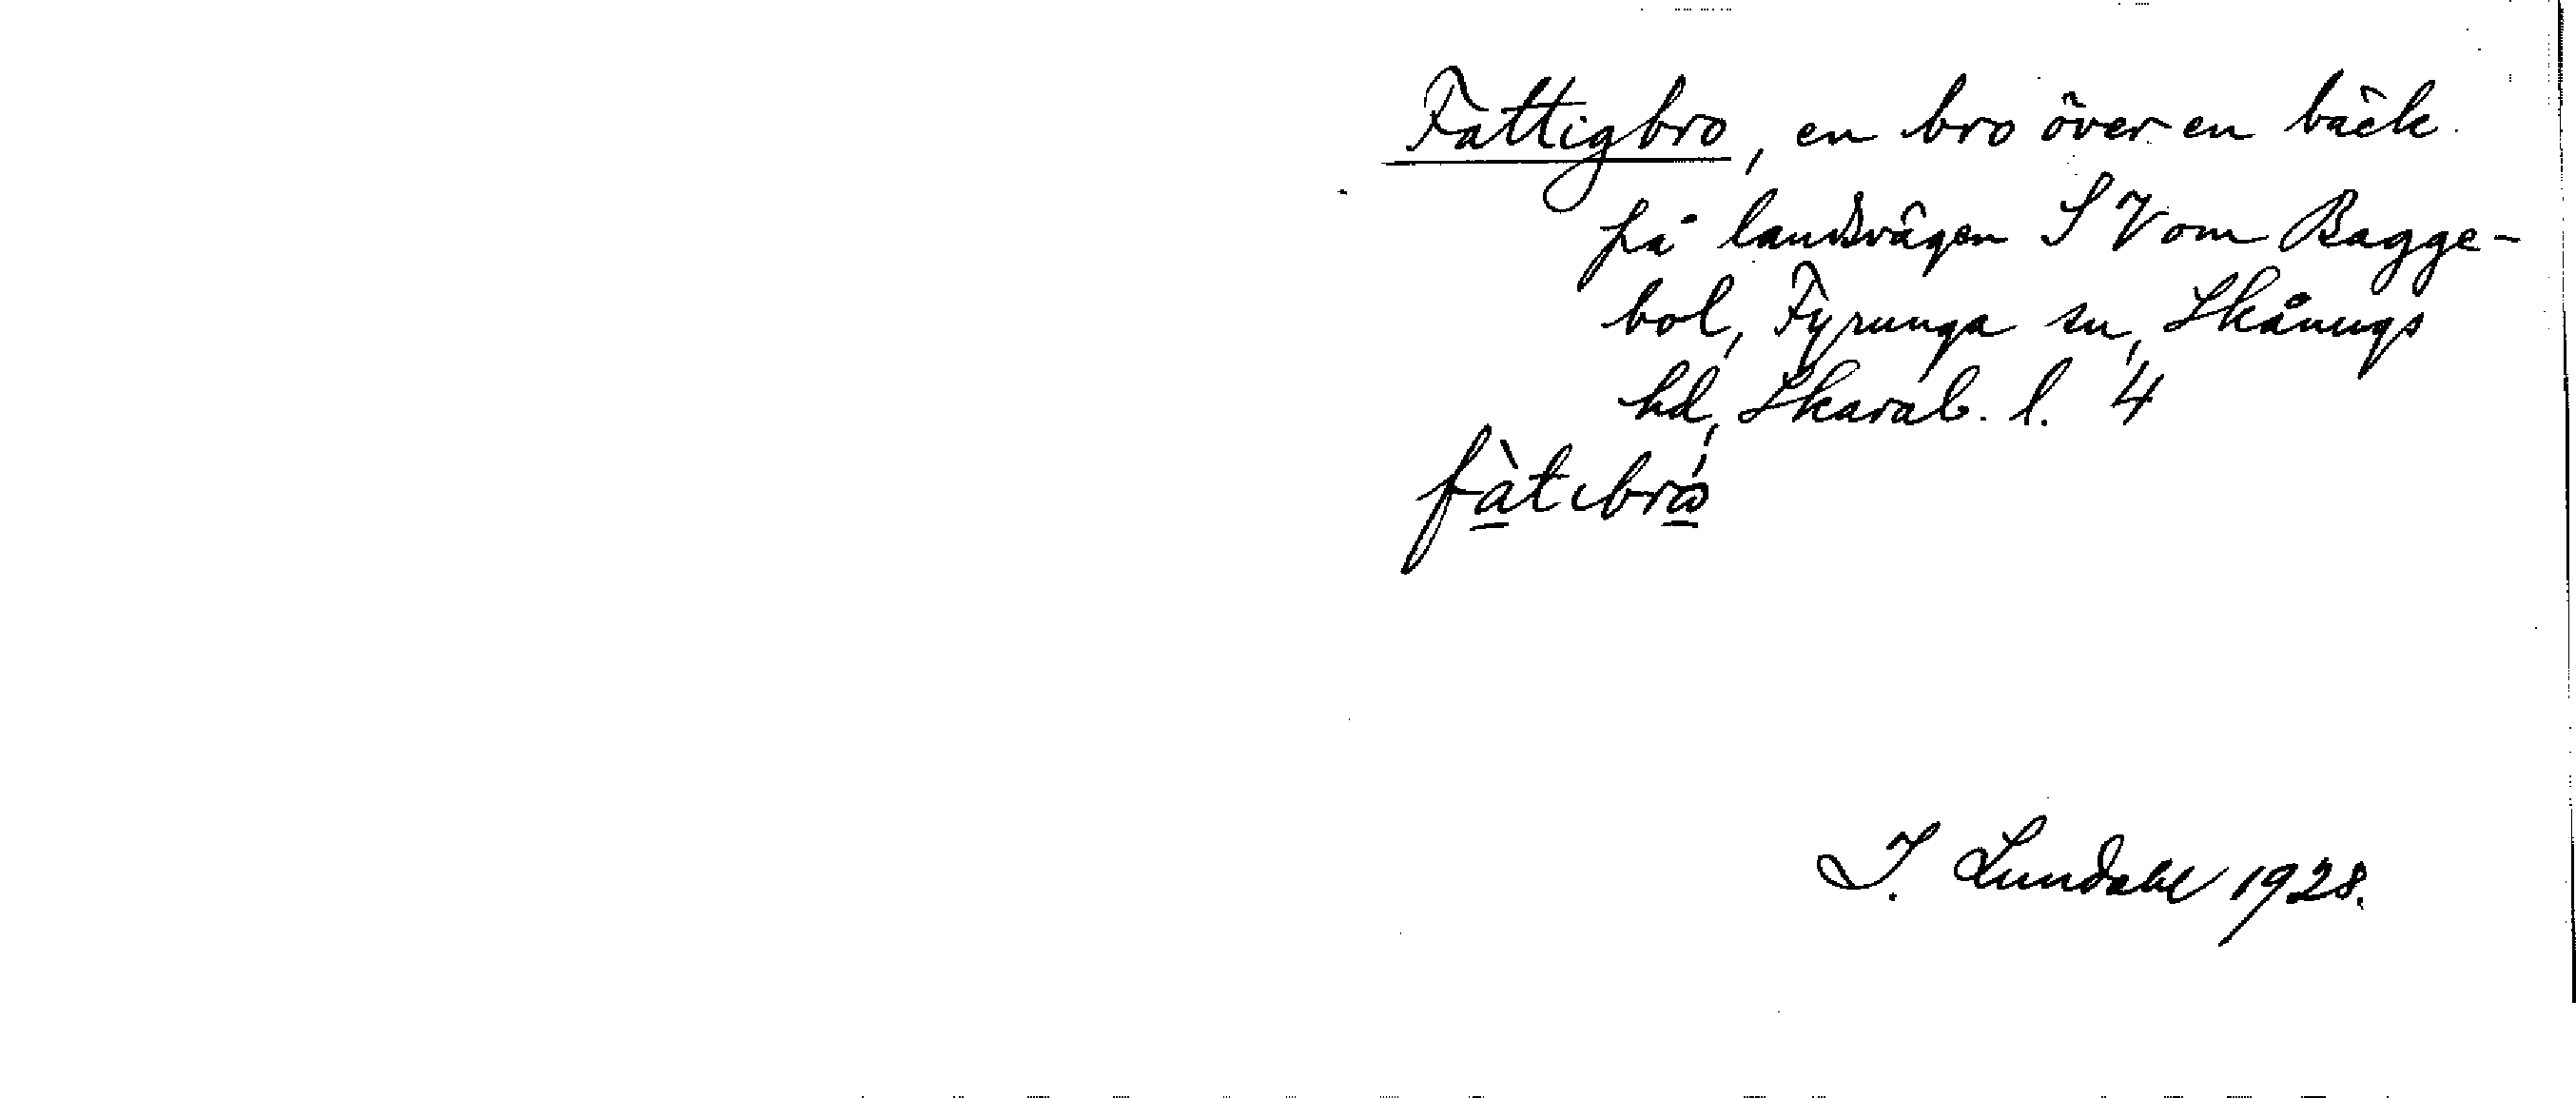 Fattigbro, en bro över en bäck
på landsvägen SV om Bagge-
bol, Fyrunga sn, Skånings
hd, Skarab. l. 4
I. Lundahl 1928.